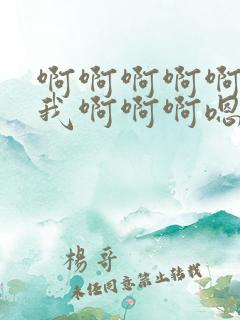 啊啊啊啊啊
我啊啊啊嗯
楊哥
未任同意禁止转载